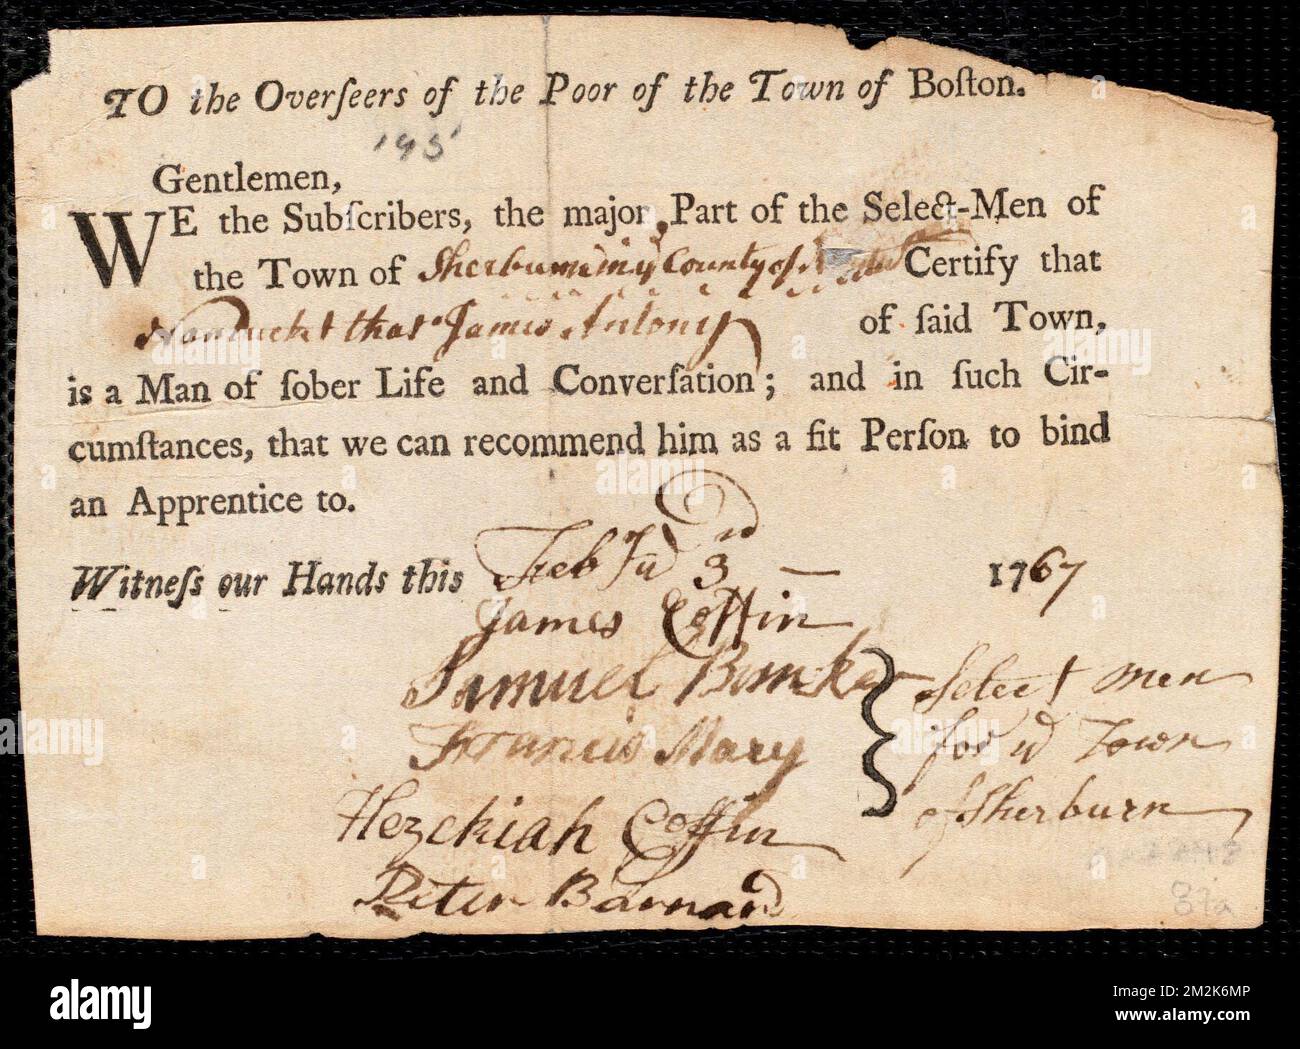 TO the Overſeers of the Poor of the Town of Boſton.
'95'
Gentlemen,
WE the Subſcribers, the major Part of the Select-Men of
the Town of Sherburn in yͤ County of Certify that
Nantucket that James Antony of ſaid Town,
is a Man of ſober Life and Converſation; and in ſuch Cir-
cumſtances, that we can recommend him as a fit Perſon to bind
an Apprentice to.
Witneſs our Hands this 3rd — 1767
James Coffin
Samuel Bunker
Francis Macy
Hezekiah Coffin
Peter Barnard
Select men
for yͤ Town
of Sherburn
87a
alamy
Image ID: 2M2K6MP
www.alamy.com